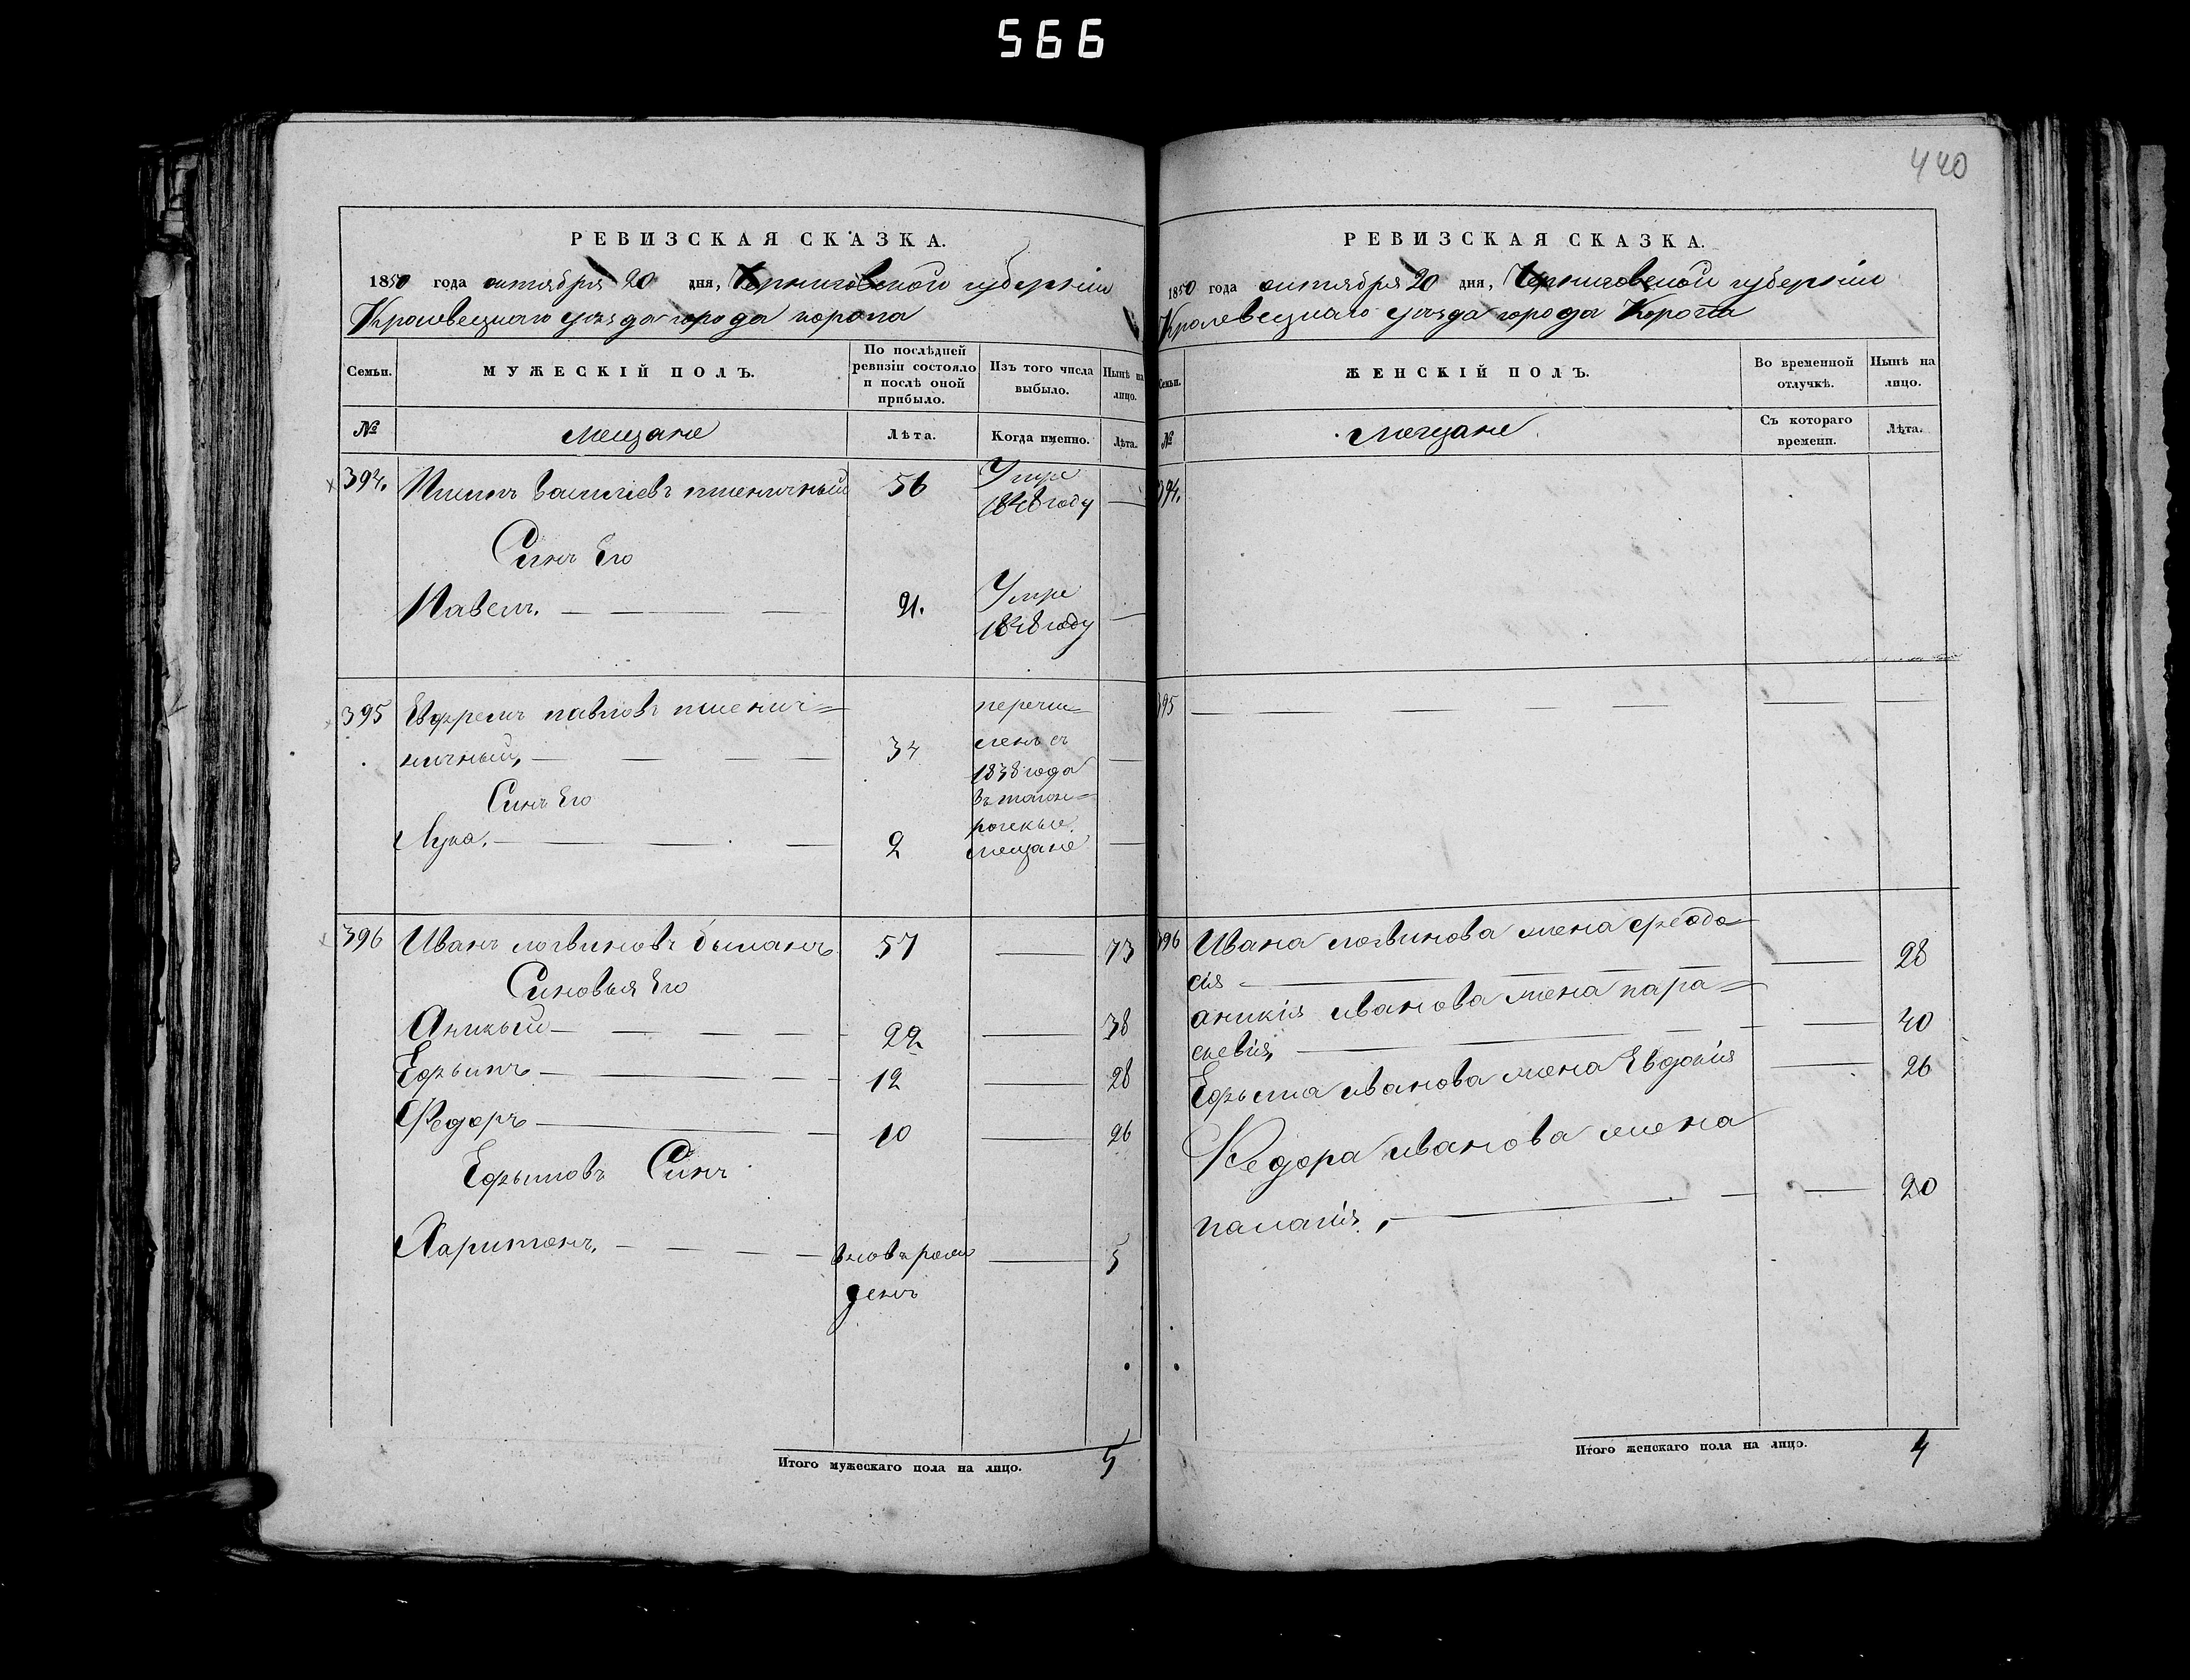 566
440
РЕВИЗСКАЯ СКАЗКА.
1850 года октября 20 дня, Черниговской губерніи
Кролевецкаго уѣзда города коропа
Семьи.
МУЖЕСКІЙ ПОЛЪ.
По послѣдней
ревизіи состояло
и послѣ оной
прибыло.
Изъ того числа
выбыло.
Нынѣ на
лицо.
№
мещане
Лѣта.
Когда именно.
Лѣта.
394. васильевъ пшеничный 56 Умре
1848 году
Синъ Его
Павелъ. 21. Умре
1848 году
395 Евфремъ павловъ пшенич=
ничный, 34
Синъ Его
Лука. 2
перечис=
ленъ съ
1838 года
въ таган=
рогские
мещане
396 Иванъ логвиновъ 57 73
Синовья Его
Аникый 22 38
Ефымъ 12 28
Федоръ 10 26
Ефымовъ Синъ
Харитонъ. вновь рож 5
денъ
Итого мужескаго пола на лицо. 5
РЕВИЗСКАЯ СКАЗКА.
1850 года октября 20 дня, Черниговской губерніи
Кролевецкаго уѣзда города Коропа
Семьи.
ЖЕНСКІЙ ПОЛЪ.
Во временной
отлучкѣ.
Нынѣ на
лицо.
№
мещане
Съ котораго
времени.
Лѣта.
394.
395
396 Ивана логвинова жена феодо
сія 28
аникія иванова жена пара=
скевія, 40
Ефыма иванова жена Евдокія 26
Федора иванова жена
палагія, 20
Итого женскаго пола на лицо. 4